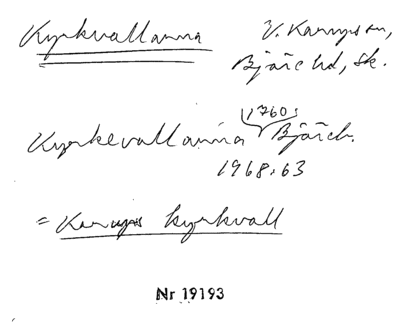 Kyrkvallarna V. Karups sn,
Bjäre hd, Sk.
1760:
Kyrkevallarna Bjäreh.
1968:63
= Karups kyrkvall
Nr 19193